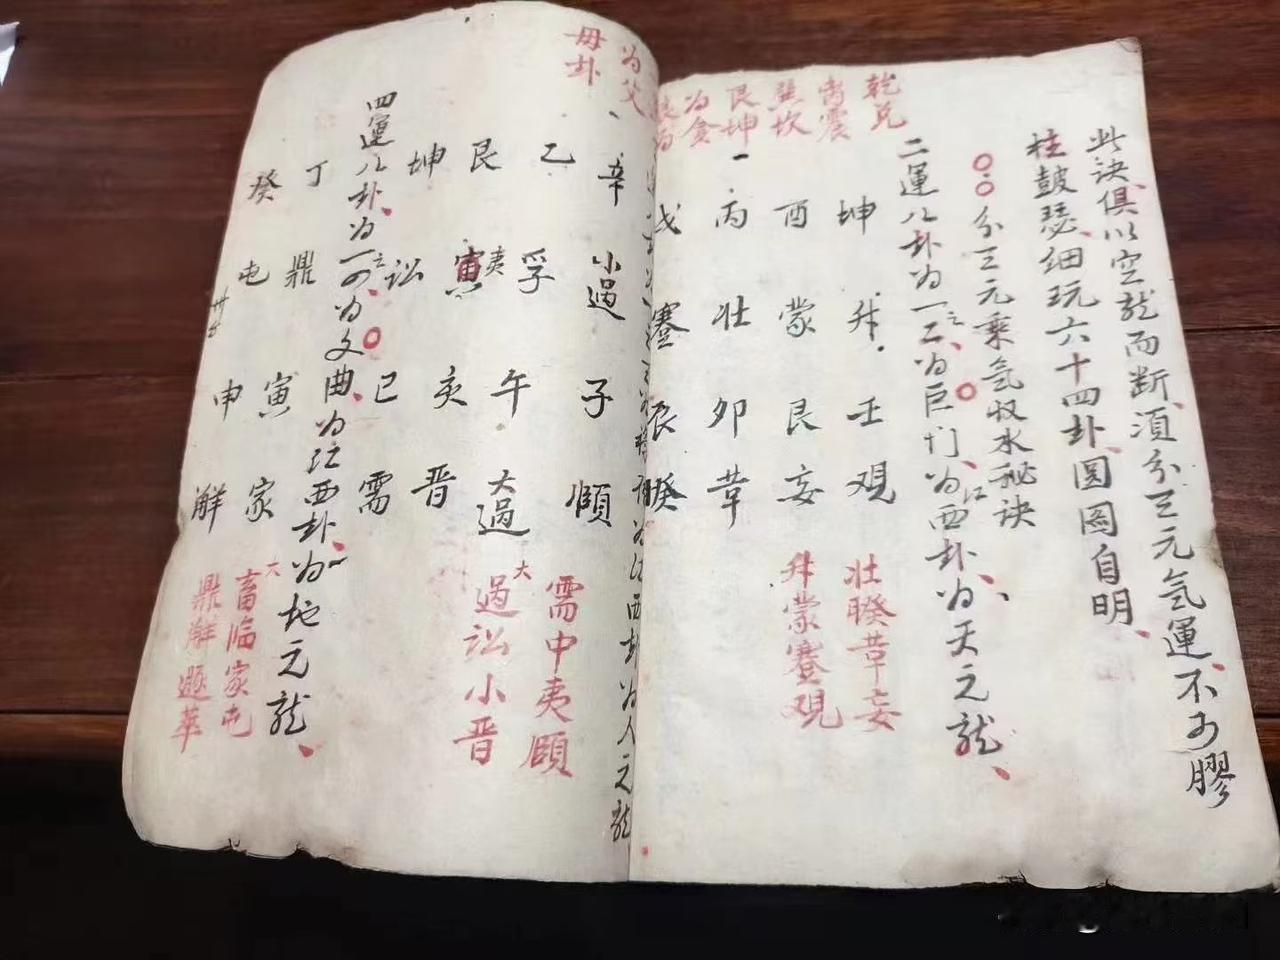 此诀俱以空龙而断、湏分三元气運、不可膠
柱鼓瑟、细玩六十四卦、圆圖自明、
〇〇分三元乘气収水秘诀
二運八卦为一二、为巨门、为江西卦、为天元龙、
乾兑
震
坎
艮坤
为
坤 升 壬 观
酉 蒙 艮 妄
丙 壮 卯 革
戌 蹇 辰 睽
壮睽革妄
升蒙蹇观
为父
母卦
为人元龙
辛 小過 子 頤
乙 孚 午 大過
艮 夷 亥 晋
坤 讼 巳 需
丁 鼎 寅 家
癸 屯 申 解
需中夷頤
大過讼小晋
四運八卦、为一四、为文曲、为江西卦、为地元龙、
大畜临家屯
鼎解遯萃